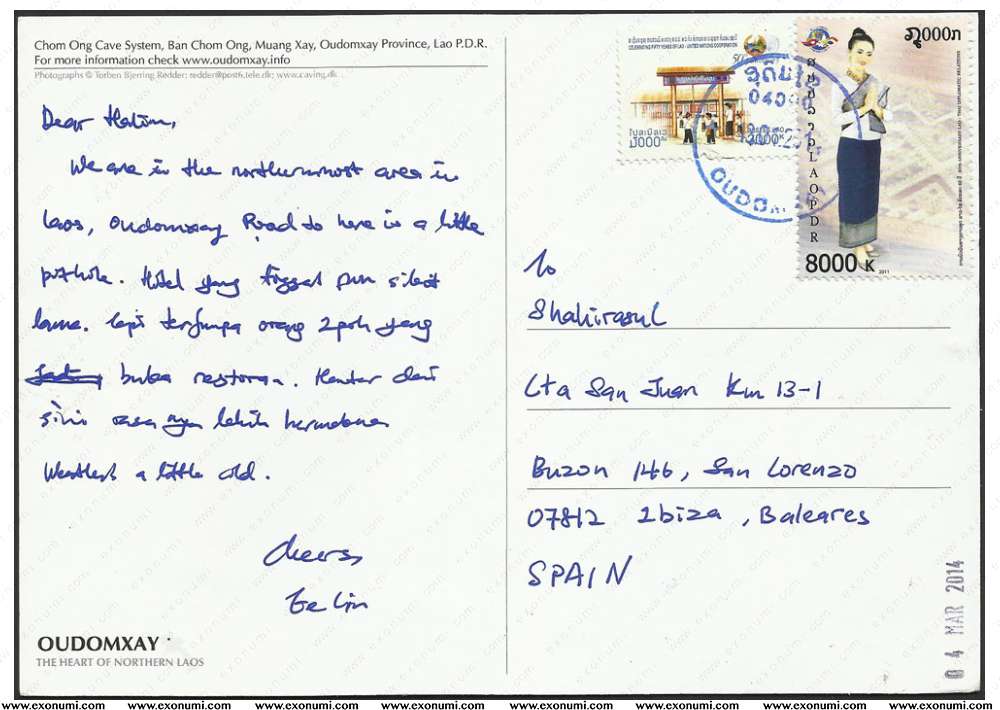 Chom Ong Cave System, Ban Chom Ong, Muang Xay, Oudomxay Province, Lao P.D.R.
For more information check www.oudomxay.info
Photographs © Torben Bjerring Redder: redder@post6.tele.dk; www.caving.dk
Dear Halim,
We are in the northernmost area in
Laos, Oudomxay Road to here is a little
pothole. Hotel yang tinggal pun
lama. Tapi terjumpa orang Ipoh yang
buka restoran. Hantar dari
sini rasa nya lebih bermakna
Weather a little cold.
Cheers,
Ee Lin
OUDOMXAY
THE HEART OF NORTHERN LAOS
CELEBRATING FIFTY YEARS OF LAO - UNITED NATIONS COOPERATION
ສປປ ລາວ LAO PDR
8000 K
2011
OUDOM
To
Shahirasul
Cta San Juan Km 13-1
Buzon 146, San Lorenzo
07812 Ibiza, Baleares
SPAIN
04 MAR 2014
www.exonumi.com www.exonumi.com www.exonumi.com www.exonumi.com www.exonumi.com www.exonumi.com www.exonumi.com www.exonumi.com